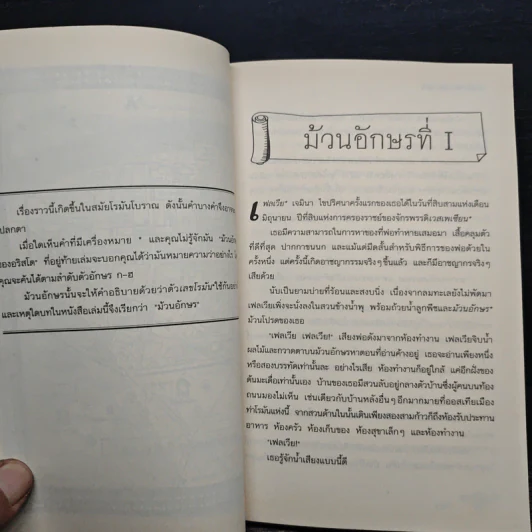 เรื่องราวนี้เกิดขึ้นในสมัยโรมันโบราณ ดังนั้นคำบางคำจึงอาจ
ปลกตา
เมื่อใดเห็นคำที่มีเครื่องหมาย * และคุณไม่รู้จักมัน "ม้วนอักษ
ของอริสโต" ที่อยู่ท้ายเล่มจะบอกคุณได้ว่ามันหมายความว่าอย่างไร
คุณจะค้นได้ตามลำดับตัวอักษร ก-ฮ
ม้วนอักษรนั้นจะให้คำอธิบายด้วยว่าตัวเลขโรมัน*ใช้กันอย่
และเหตุใดบทในหนังสือเล่มนี้จึงเรียกว่า "ม้วนอักษร"
ม้วนอักษรที่ I
เฟลเวีย* เจมินา ไขปริศนาครั้งแรกของเธอได้ในวันที่สิบสามแห่งเดือน
มิถุนายน ปีที่สิบแห่งการครองราชย์ของจักรพรรดิเวสเพเซียน*
เธอมีความสามารถในการหาของที่พ่อทำหายเสมอมา เสื้อคลุมตัว
ที่ดีที่สุด ปากกาขนนก และแม้แต่มีดสั้นสำหรับพิธีการของพ่อด้วยใน
ครั้งหนึ่ง แต่ครั้งนี้เกิดอาชญากรรมจริงๆ ขึ้นแล้ว และก็มีอาชญากรจริงๆ
เสียด้วย
นับเป็นยามบ่ายที่ร้อนและสงบนิ่ง เนื่องจากลมทะเลยังไม่พัดมา
เฟลเวียเพิ่งจะนั่งลงในสวนข้างน้ำพุ พร้อมถ้วยน้ำลูกพีชและม้วนอักษร*
ม้วนโปรดของเธอ
"เฟลเวีย เฟลเวีย!" เสียงพ่อดังมาจากห้องทำงาน เฟลเวียจิบน้ำ
ผลไม้และกวาดตาบนม้วนอักษรหาตอนที่อ่านค้างอยู่ เธอจะอ่านเพียงหนึ่ง
หรือสองบรรทัดเท่านั้นละ อย่างไรเสีย ห้องทำงานก็อยู่ใกล้ แค่อีกฝั่งของ
ต้นมะเดื่อเท่านั้นเอง บ้านของเธอมีสวนลับอยู่กลางตัวบ้านซึ่งผู้คนบนท้อง
ถนนมองไม่เห็น เช่นเดียวกับบ้านหลังอื่นๆ อีกมากมายที่ออสเทียเมือง
ท่าโรมันแห่งนี้ จากสวนด้านในนั้นเดินเพียงสองสามก้าวก็ถึงห้องรับประทาน
อาหาร ห้องครัว ห้องเก็บของ ห้องสุขาเล็กๆ และห้องทำงาน
"เฟลเวีย!"
เธอรู้จักน้ำเสียงแบบนี้ดี